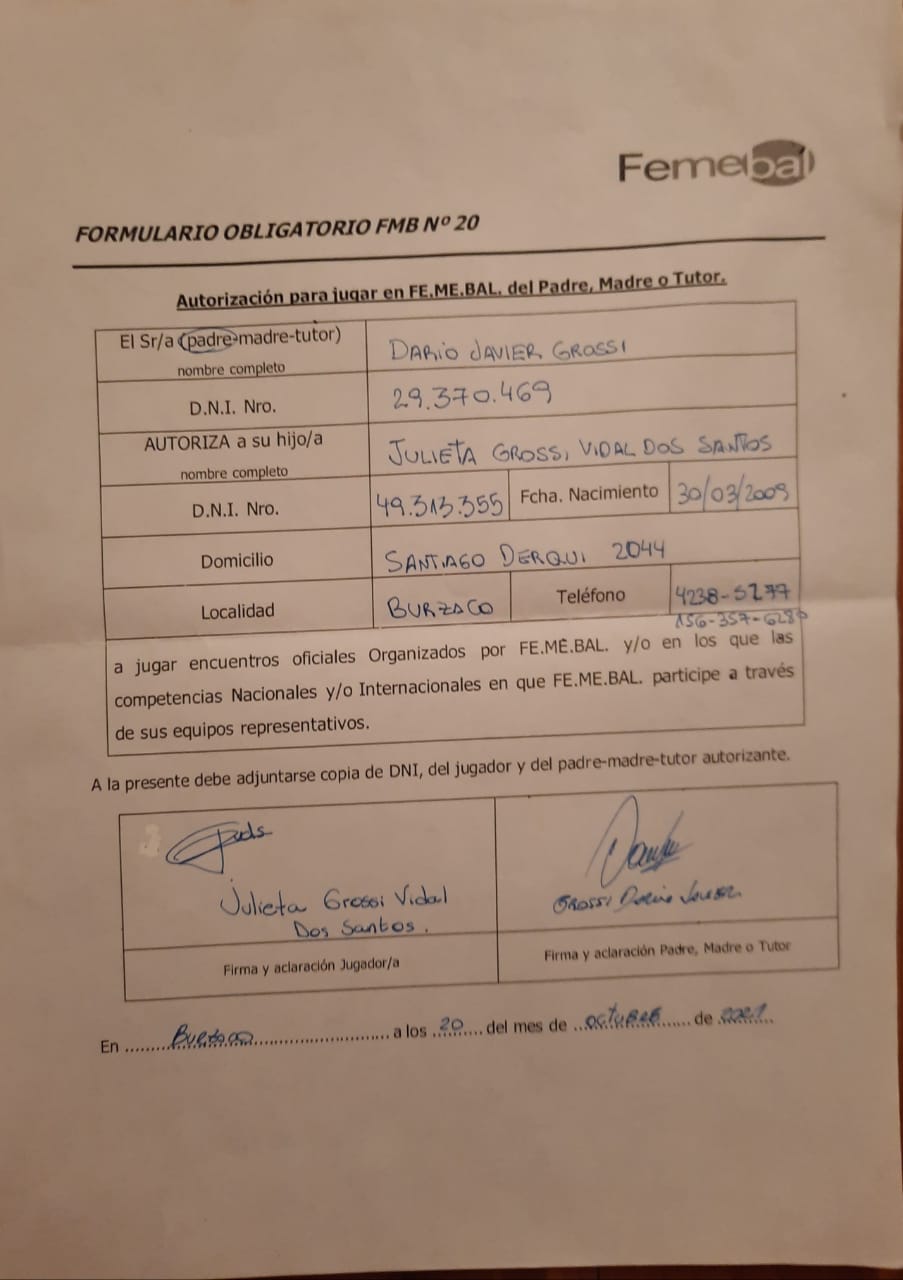 Femebal
FORMULARIO OBLIGATORIO FMB Nº 20
Autorización para jugar en FE.ME.BAL. del Padre, Madre o Tutor.
El Sr/a (padre-madre-tutor)
nombre completo
DARIO JAVIER GROSSI
D.N.I. Nro.
29.370.469
AUTORIZA a su hijo/a
nombre completo
JULIETA GROSSI VIDAL DOS SANTOS
D.N.I. Nro.
49.313.355
Fcha. Nacimiento
30/03/2009
Domicilio
SANTIAGO DERQUI 2044
Localidad
BURZACO
Teléfono
4238-5277
156-357-6280
a jugar encuentros oficiales Organizados por FE.ME.BAL. y/o en los que las
competencias Nacionales y/o Internacionales en que FE.ME.BAL. participe a través
de sus equipos representativos.
A la presente debe adjuntarse copia de DNI, del jugador y del padre-madre-tutor autorizante.
Julieta Grossi Vidal
Dos Santos.
GROSSI Dario Javier
Firma y aclaración Jugador/a
Firma y aclaración Padre, Madre o Tutor
En ......Burzaco.............................. a los ..20.... del mes de ..OCTUBRE...... de ..2021..